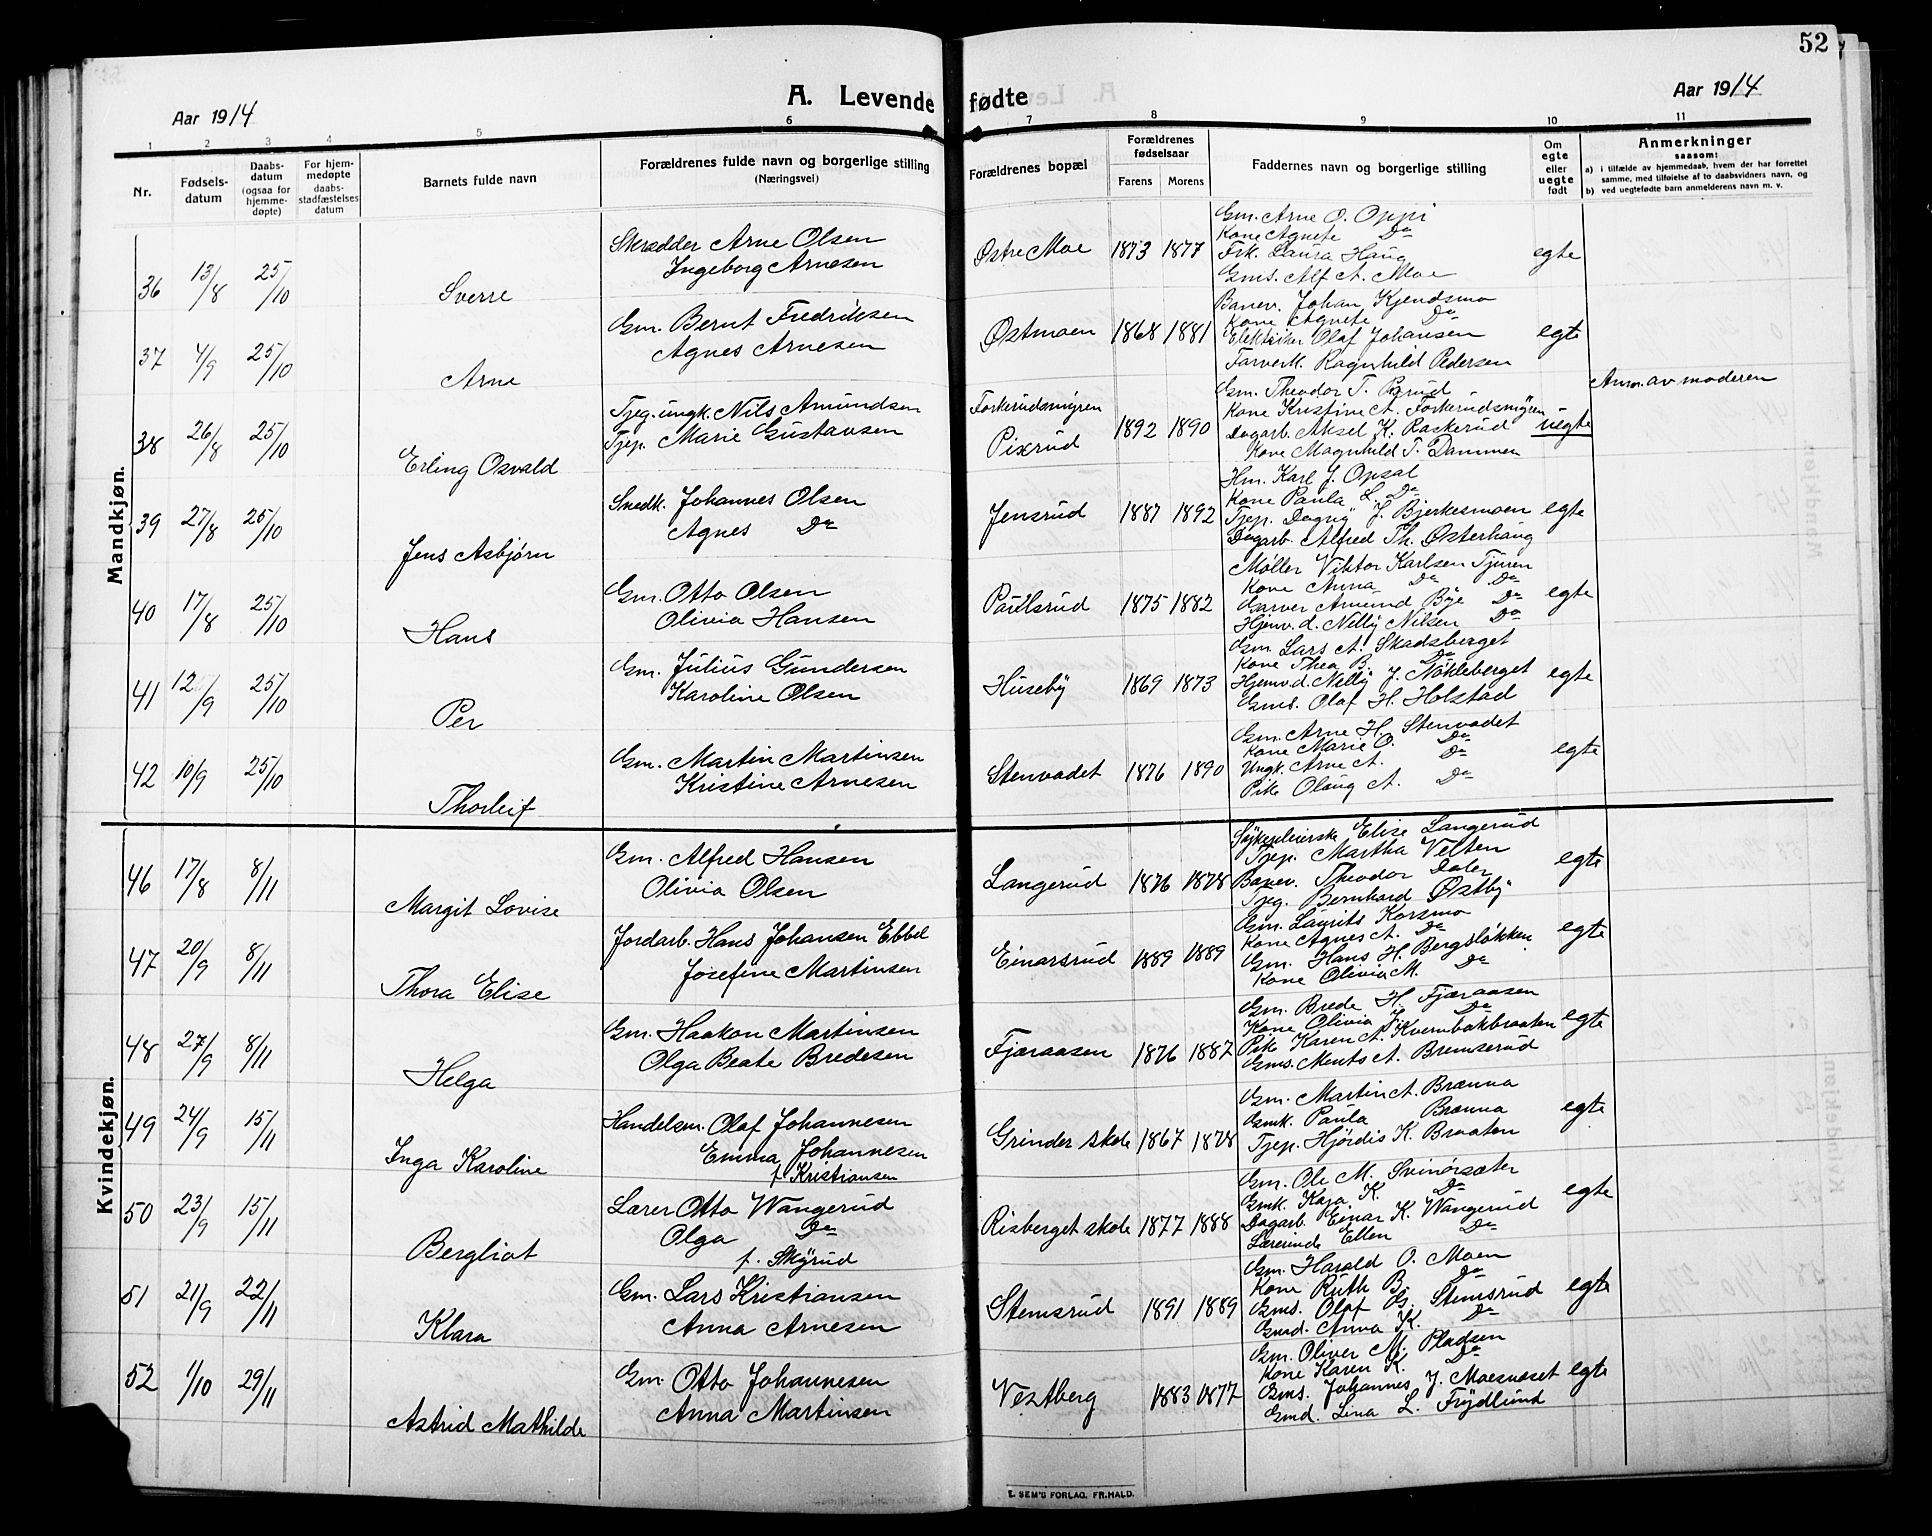 52
Aar 1914
A. Levende fødte
Aar 1914
1 2 3 4 5 6 7 8 9 10 11
Nr.
Fødsels-
datum
Daabs-
datum
(ogsaa for
hjemme-
døpte)
For hjem-
medøpte
daabs-
stadfæstelses
datum
Barnets fulde navn
Forældrenes fulde navn og borgerlige stilling
(Næringsvei)
Forældrenes bopæl
Forældrenes
fødselsaar
Farens Morens
Faddernes navn og borgerlige stilling
Om
egte
eller
uegte
født
Anmerkninger
saasom:
a) i tilfælde av hjemmedaab, hvem der har forrettet
samme, med tilføielse af to daabsvidners navn, og
b) ved uegtefødte barn anmelderens navn m. v.
Mandkjøn.
36 13/8 25/10
Sverre
Skrædder Arne Olsen
Ingeborg Arnesen
Østre Moe 1873 1877
Gm. Arne O. Oppi
Kone Agnete Do
Frk. Laura Haug
Gms. Alf A. Moe
egte
37 4/9 25/10
Arne
Gm. Bernt Fredriksen
Agnes Arnesen
Østmoen 1868 1881
Banev. Johan Kjendsmo
Kone Agnete Do
Elektriker Olaf Johansen
Farverk. Ragnhild Pedersen
egte
38 26/8 25/10
Erling Osvald
Tjeg. ungk. Nils Amundsen
Tjep. Marie Gustavsen
Forkerudsmyren
Pixrud
1892 1890
Gm. Theodor T.
Kone Kristine A. Forkerudsmyren
Dagarb. Aksel K. Raskerud
Kone Magnhild T. Dammen
uegte
Anm. av moderen
39 27/8 25/10
Jens Asbjørn
Snedk. Johannes Olsen
Agnes Do
Jensrud 1887 1892
Hm. Karl J. Opsal
Kone Paula L. Do
Tjep. Dagny J. Bjerkesmoen
Dagarb. Alfred Th. Østerhaug
egte
40 17/8 25/10
Hans
Gm. Otto Olsen
Olivia Hansen
Paulsrud 1875 1882
Møller Viktor Karlsen Tjuren
Kone Anna Do Do
Garver Amund Bye Do
Hjemv. d. Nelly Nilsen Do
egte
41 12/9 25/10
Per
Gm. Julius Gundersen
Karoline Olsen
Huseby 1869 1873
Gm. Lars A. Skadsberget
Kone Thea B. Do
Hjemv. d. Nelly J. Nökleberget
Gms. Olaf H. Holstad
egte
42 10/9 25/10
Thorleif
Gm. Martin Martinsen
Kristine Arnesen
Stenvadet 1876 1890
Gm. Arne H. Stenvadet
Kone Marie O. Do
Ungk. Arne A. Do
Pike Olaug A. Do
egte
Kvindekjøn.
46 17/8 8/11
Margit Lovise
Gm. Alfred Hansen
Olivia Olsen
Langerud 1876 1878
Sykepleierske Elise Langerud
Tjep. Martha Velten
Banev. Theodor Daler
Tjeg. Bernhard Østby
egte
47 20/9 8/11
Thora Elise
Jordarb. Hans Johansen Ebbel
Josefine Martinsen
Einarsrud 1889 1889
Gm. Laurits Korsmo
Kone Agnes A. Do
Gm. Hans H. Bergsløkken
Kone Olivia M. Do
egte
48 27/9 8/11
Helga
Gm. Haakon Martinsen
Olga Beate Bredesen
Fjæraasen 1876 1887
Gm. Brede H. Fjæraasen
Kone Olivia J. Do
Pike Karen A. Kvernbakbraaten
Gms. Ments A. Bremserud
egte
49 24/9 15/11
Inga Karoline
Handelsm. Olaf Johannesen
Emma Johannesen
f. Kristiansen
Grinder skole 1867 1878
Gm. Martin A. Brænna
Gmk. Paula Brænna
Tjep. Hjördis K. Braaten
egte
50 23/9 15/11
Bergliot
Lærer Otto Wangerud
Olga Do
f. Skyrud
Risberget skole 1877 1888
Gm. Ole M. Svinörsæter
Gmk. Kaja K. Do
Dagarb. Einar K. Wangerud
Lærerinde Ellen Do
egte
51 21/9 22/11
Klara
Gm. Lars Kristiansen
Anna Arnesen
Stemsrud 1891 1889
Gm. Harald O. Moen
Kone Ruth B. Do
Gms. Olaf G. Stemsrud
Gmd. Anna K. Do
egte
52 1/10 29/11
Astrid Mathilde
Gm. Otto Johannesen
Anna Martinsen
Vestberg 1883 1877
Gm. Oliver M. Pladsen
Kone Karen K. Do
Gms. Johannes J. Moesnæset
Gmd. Lina L. Frydlund
egte
E. SEM'S FORLAG, FR.HALD.